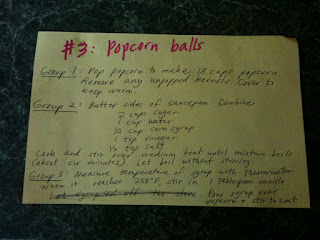 #3: Popcorn balls
Group 1: Pop popcorn to make 18 cups popcorn.
Remove any unpopped kernels. Cover to
keep warm.
Group 2: Butter sides of saucepan. Combine
2 cups sugar
1 cup water
½ cup corn syrup
1 tsp vinegar
½ tsp salt
Cook and stir over medium heat until mixture boils
(about six minutes). Let boil without stirring
Group 3: Measure temperature of syrup with thermometer
when it reaches 250°F, stir in 1 Tablespoon vanilla
Let syrup roll off the Pour syrup over
popcorn + stir to coat